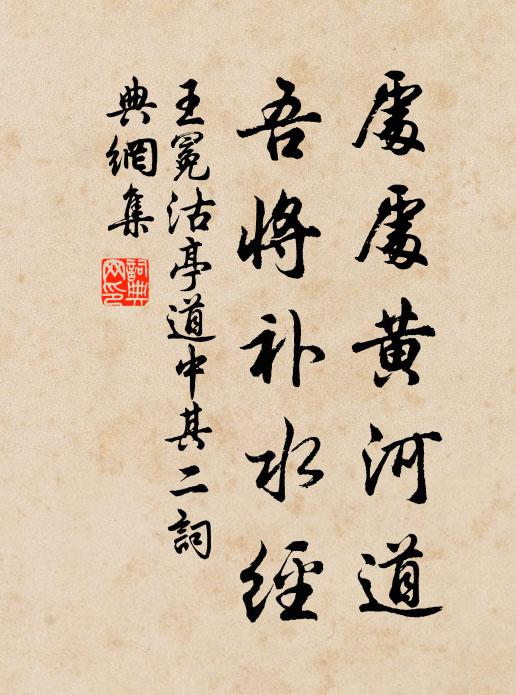 處處黄河道
吾將补水經
王冕沽亭道中其二詞
典網集
詞典
网印